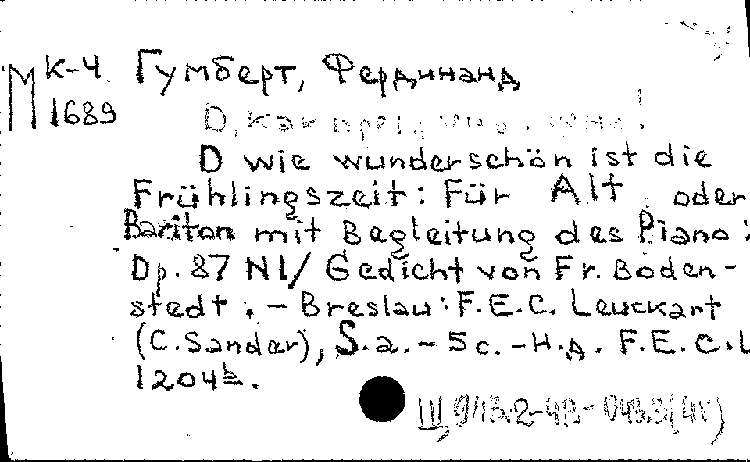 М К-4 Гумберт, Фердинанд
1689
О, как
O wie wunderschön ist die
Frühlingszeit: Für Alt oder
Bariton mit Begleitung des Piano:
Op. 87 N1/ Gedicht von Fr. Boden-
stedt. – Breslau: F.E.C. Leuckart
(C. Sander), S.a. – 5 c. – Н.д. F.E.C.L
1204b.
III,